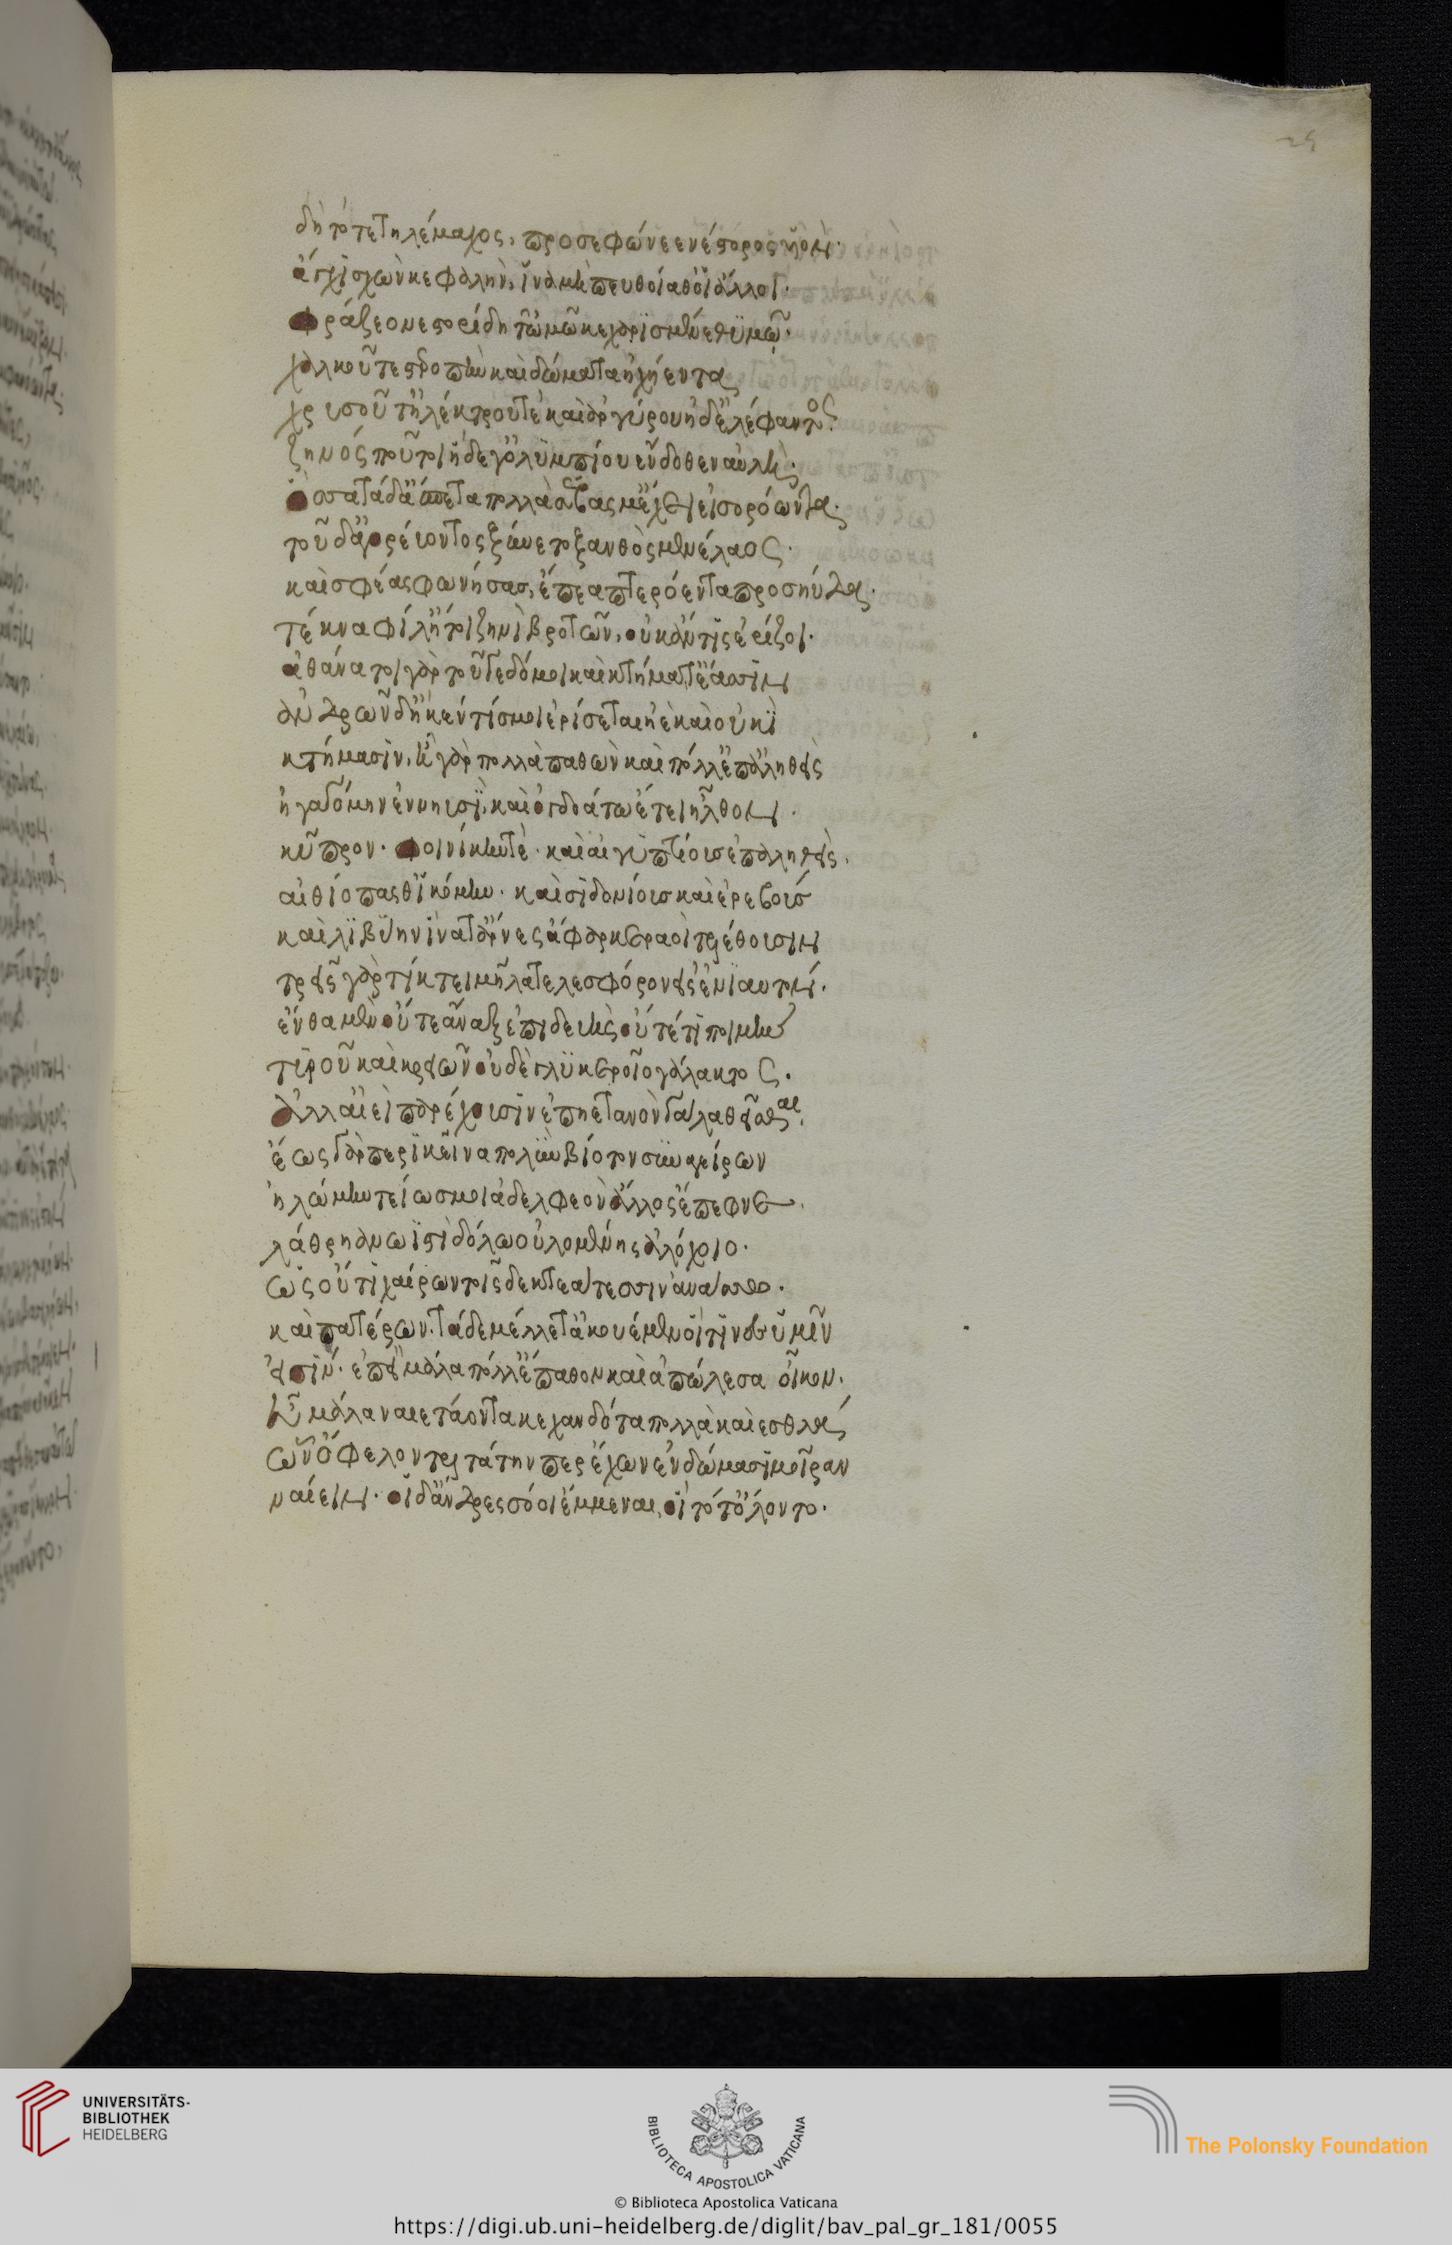 δὴ τότε τηλέμαχος, προσεφώνεε νέστορος υἱὸν·
ἄγχι σχὼν κεφαλὴν, ἵνα μὴ πευθοίαθ' οἱ ἄλλοι·
φράζεο νεστορίδη τῶ μῶ κεχαρισμένε θυμῶ·
χαλκοῦ τε στροπὴν καὶ δώματα ἠχήεντα
χρυσοῦ τ' ἠλέκτρου τὲ καὶ ἀργύρου ἠδ' ἐλέφαντος·
ζηνός που τοιήδε γ' ὀλυμπίου ἔνδοθεν αὐλὴ·
ὅσσα τάδ' ἄσπετα πολλὰ σέβας μ' ἔχει εἰσορόωντα·
τοῦ δ' ἀγορέυοντος ξύνετο ξανθὸς μενέλαος·
καὶ σφέας φωνήσας, ἔπεα πτερόεντα προσηύδα·
τέκνα φίλ' ἤτοι ζηνὶ βροτῶν, οὐκ ἄν τις ἐρίζοι·
ἀθάνατοι γὰρ τοῦ γε δόμοι καὶ κτήματ' ἔασιν
ἀνδρῶν δ' ἤ κέν τίς μοι ἐρίσεται ἠὲ καὶ οὐκὶ
κτήμασιν, ἦ γὰρ πολλὰ παθὼν καὶ πόλλ' ἐπαληθεὶς
ἠγαγόμην ἐν νηυσὶ, καὶ ὀγδοάτω ἔτει ἦλθον·
κύπρον· φοινίκην τὲ· καὶ αἰγυπτίους ἐπαληθεὶς·
αἰθίοπας θ' ἱκόμην· καὶ σιδονίους καὶ ἐρεμβούς
καὶ λιβύην ἵνα τ' ἄρνες ἄφαρ κεραοὶ τελέθουσιν
τρεῖς γὰρ τίκτει μῆλα τελεσφόρον εἰς ἐνιαυτόν·
ἔνθα μὲν οὔτε ἄναξ ἐπιδευὴς οὔτέ τι ποιμὴν
τυροῦ καὶ κρειῶν οὐδὲ γλυκεροῖο γάλακτος·
ἀλλ' αἰεὶ παρέχουσιν ἐπηετανὸν γάλα θῆσθαι·
ἕως γὰρ περὶ κεῖνα πολὺν βίοτον συναγείρων
ἠλώμην τείως μοι ἀδελφεὸν ἄλλος ἔπεφνε·
λάθρη ἀνωϊστὶ δόλω οὐλομένης ἀλόχοιο·
ὣς οὔτι χαίρων τοῖσδε κτεάτεσσιν ἀνάσσω·
καὶ πατέρων· τάδε μέλλετ' ἀκουέμεν οἵτινες ὑμῖν
εἰσίν· ἐπεὶ μάλα πόλλ' ἔπαθον καὶ ἀπώλεσα οἶκον·
εὖ μάλα ναιετάοντα κεχανδότα πολλὰ καὶ ἐσθλά
ὧν ὄφελον τριτάτην περ ἔχων ἐν δώμασι μοῖραν
ναίειν· οἱ δ' ἄνδρες σόοι ἔμμεναι, οἳ τότ' ὄλοντο·
UNIVERSITÄTS-
BIBLIOTHEK
HEIDELBERG
BIBLIOTECA APOSTOLICA VATICANA
© Biblioteca Apostolica Vaticana
The Polonsky Foundation
https://digi.ub.uni-heidelberg.de/diglit/bav_pal_gr_181/0055